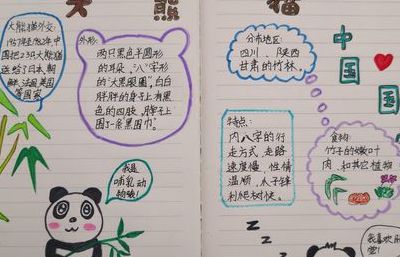 大 熊 猫
大熊猫外交:
1957年至1982年,中
国把23只大熊猫
送给了日本、朝
鲜、法国、美国
等国家
外形:
两只黑色半圆形
的耳朵,"八"字形
的"大黑眼圈",白白
胖胖的身子上有黑
色的四肢,脖子上
围了一条黑围巾。
我是
哺乳动
物哦!
分布地区:
四川、陕西
甘肃的竹林。
中
国
国
特点:
内八字的行
走方式,走路
速度慢,性情
温顺,爪子锋
利爬树快。
食物:
竹子的嫩叶
肉,和其它植物
Z
Z
我喜欢